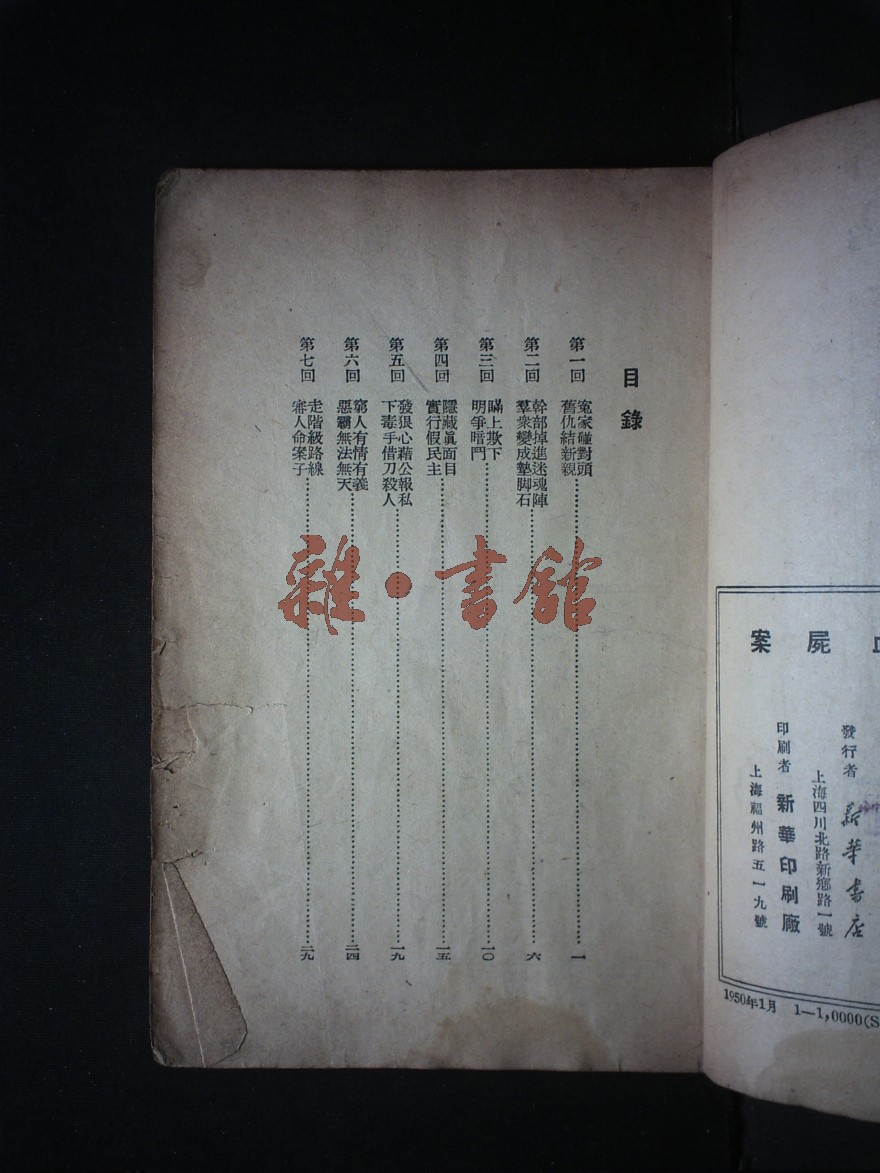 目錄
第一回 冤家碰對頭
舊仇結新親 一
第二回 幹部掉進迷魂陣
羣衆變成墊脚石 六
第三回 瞞上欺下
明爭暗鬥 一〇
第四回 隱藏眞面目
實行假民主 一五
第五回 發狠心藉公報私
下毒手借刀殺人 一九
第六回 窮人有情有義
惡霸無法無天 二四
第七回 走階級路線
審人命案子 二九
雜·書館
屍案
發行者 新華書店
上海四川北路新鄉路一號
印刷者 新華印刷廠
上海福州路五一九號
1950年1月 1—1,0000(S